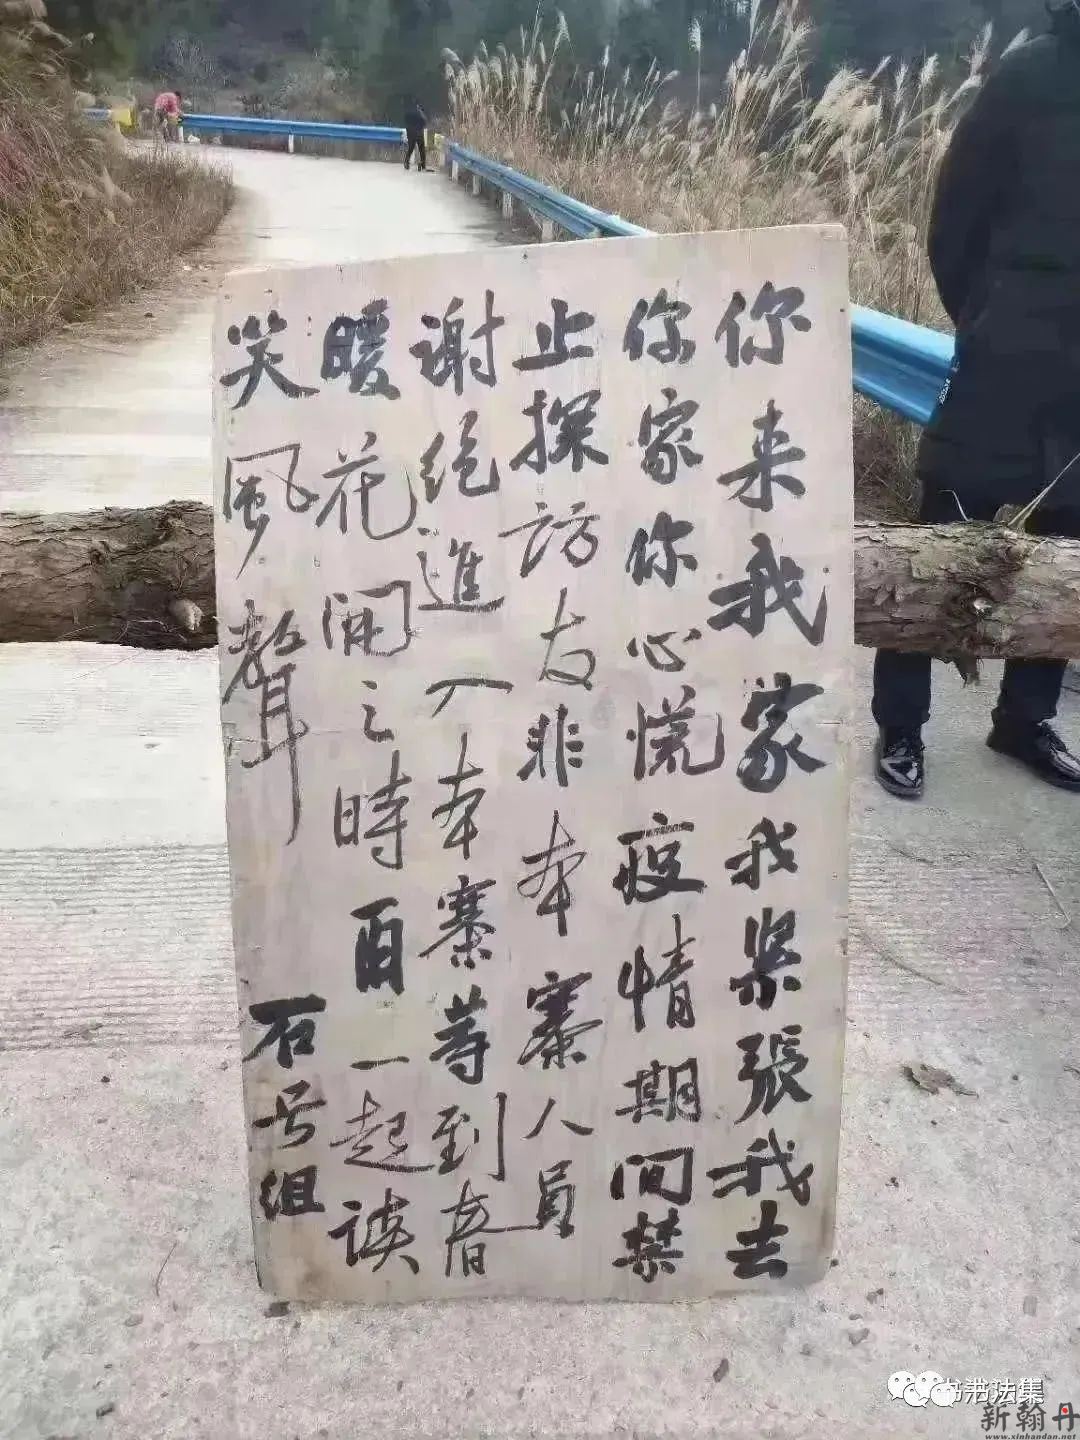 你来我家我紧張我去
你家你心慌疫情期间禁
止探访友非本寨人员
谢绝進入本寨等到春
暖花開之時再一起谈
笑風聲
石号组
新翰丹
www.xinhandan.net